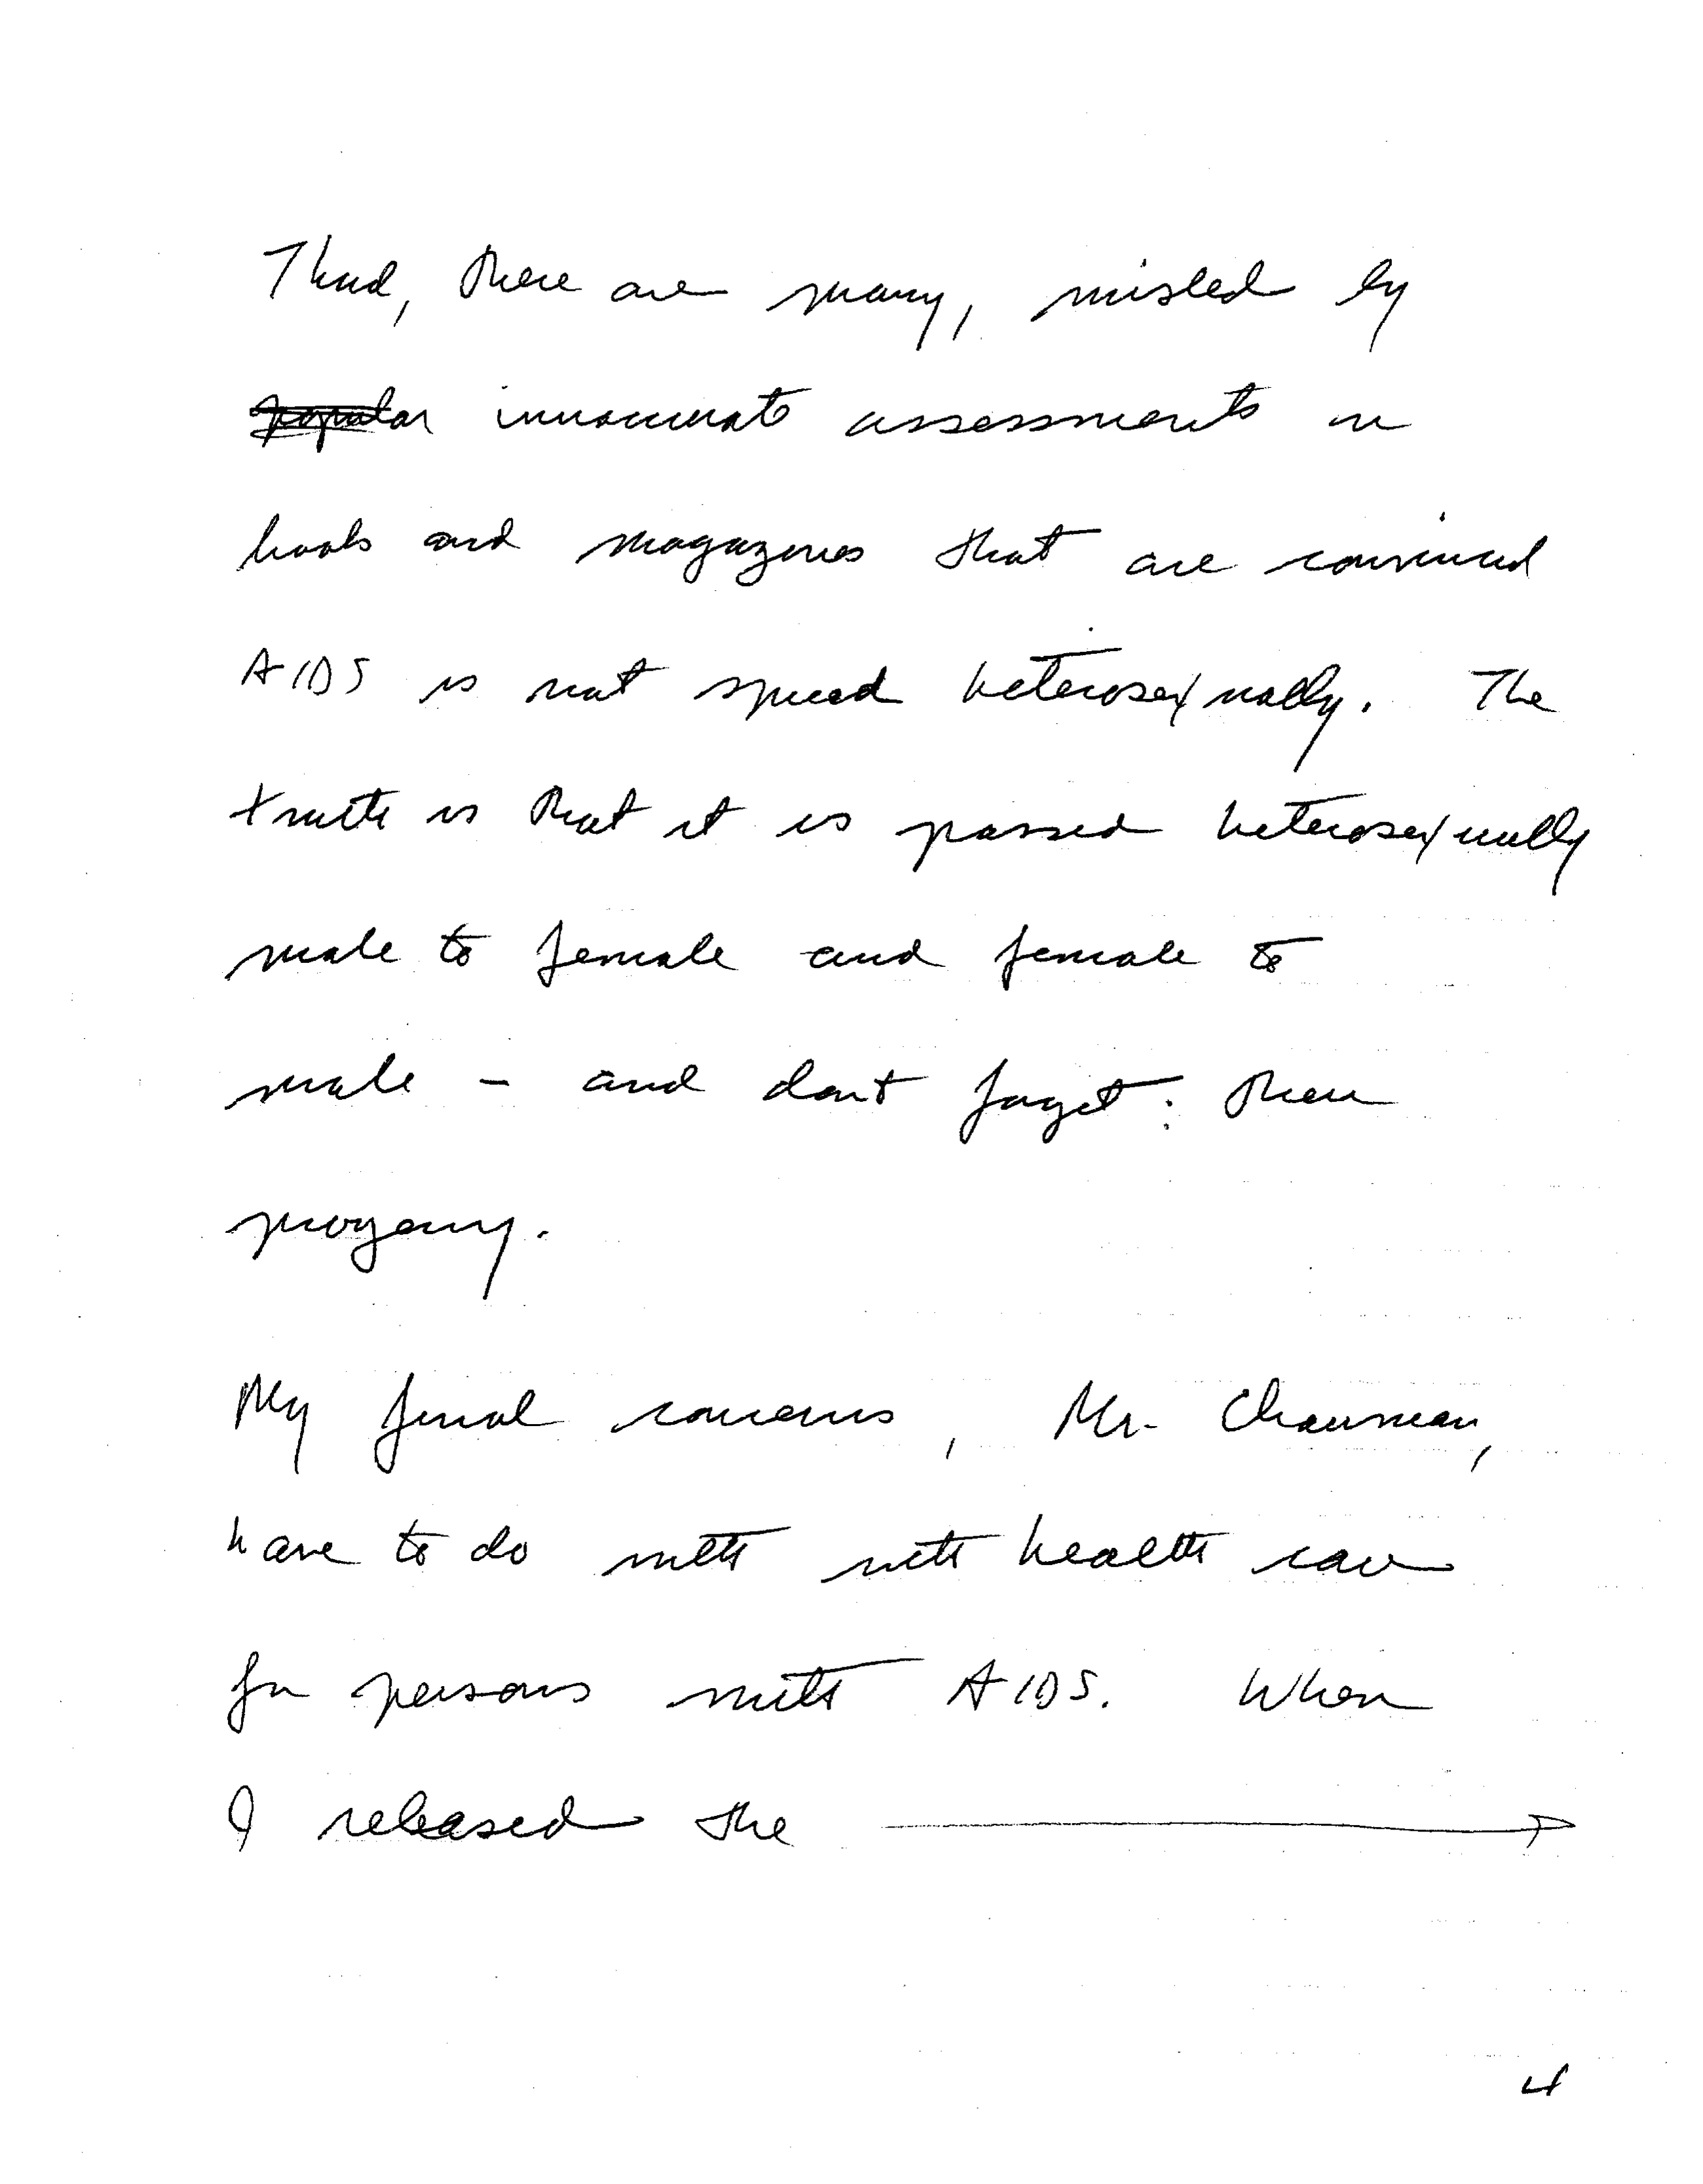 Third, there are many, misled by
popular innaccurate assessments in
books and magazines that are convinced
AIDS is not spread heterosexually. The
truth is that it is passed heterosexually
male to female and female to
male - and dont forget: their
progeny.
My final concerns, Mr. Chairman,
have to do with with health care
for persons with AIDS. When
I released the
4